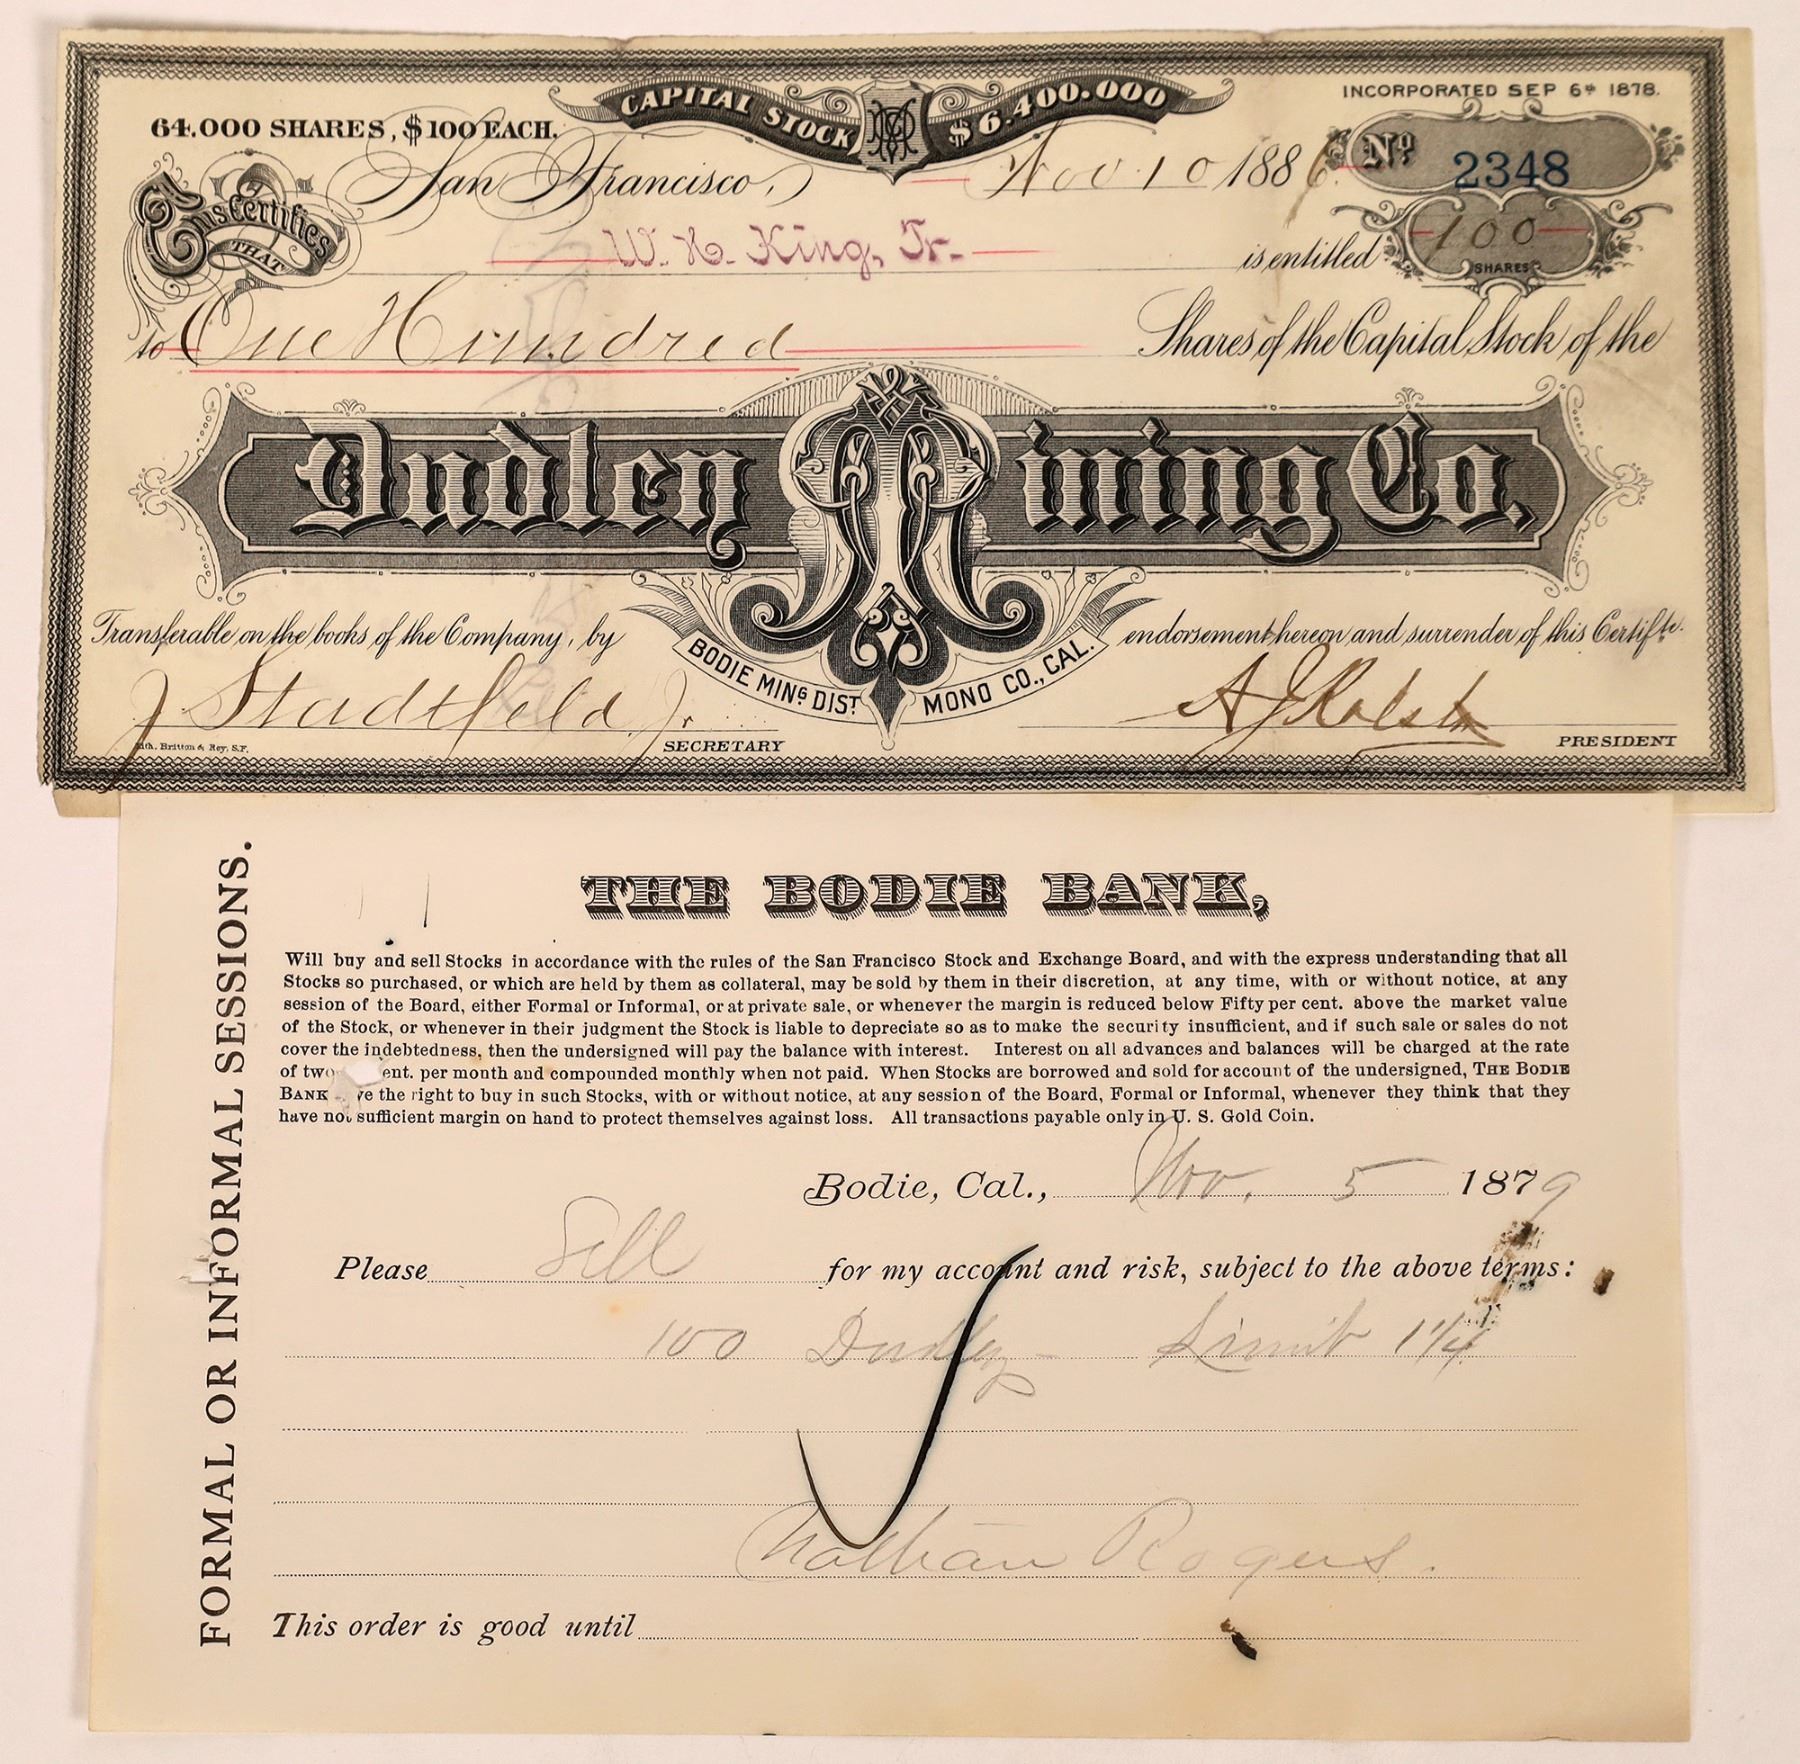 CAPITAL STOCK $6,400.000
INCORPORATED SEP 6th 1878.
64.000 SHARES, $100 EACH.
San Francisco, Nov 10 1886 No 2348
This Certifies THAT W. H. King, Jr. is entitled 100 SHARES
to One Hundred Shares of the Capital Stock of the
Dudley Mining Co.
Transferable on the books of the Company, by endorsement hereon and surrender of this Certifte.
BODIE MING DIST. MONO CO., CAL.
J Stadtfeld Jr. SECRETARY A J Ralston PRESIDENT
Lith. Britton & Rey, S.F.
FORMAL OR INFORMAL SESSIONS.
THE BODIE BANK,
Will buy and sell Stocks in accordance with the rules of the San Francisco Stock and Exchange Board, and with the express understanding that all
Stocks so purchased, or which are held by them as collateral, may be sold by them in their discretion, at any time, with or without notice, at any
session of the Board, either Formal or Informal, or at private sale, or whenever the margin is reduced below Fifty per cent. above the market value
of the Stock, or whenever in their judgment the Stock is liable to depreciate so as to make the security insufficient, and if such sale or sales do not
cover the indebtedness, then the undersigned will pay the balance with interest. Interest on all advances and balances will be charged at the rate
of two ent. per month and compounded monthly when not paid. When Stocks are borrowed and sold for account of the undersigned, THE BODIE
BANK ve the right to buy in such Stocks, with or without notice, at any session of the Board, Formal or Informal, whenever they think that they
have not sufficient margin on hand to protect themselves against loss. All transactions payable only in U. S. Gold Coin.
Bodie, Cal., Nov. 5 1879
Please Sell for my account and risk, subject to the above terms:
100 Dudley - Limit 1 1/4
Nathan Rogers.
This order is good until